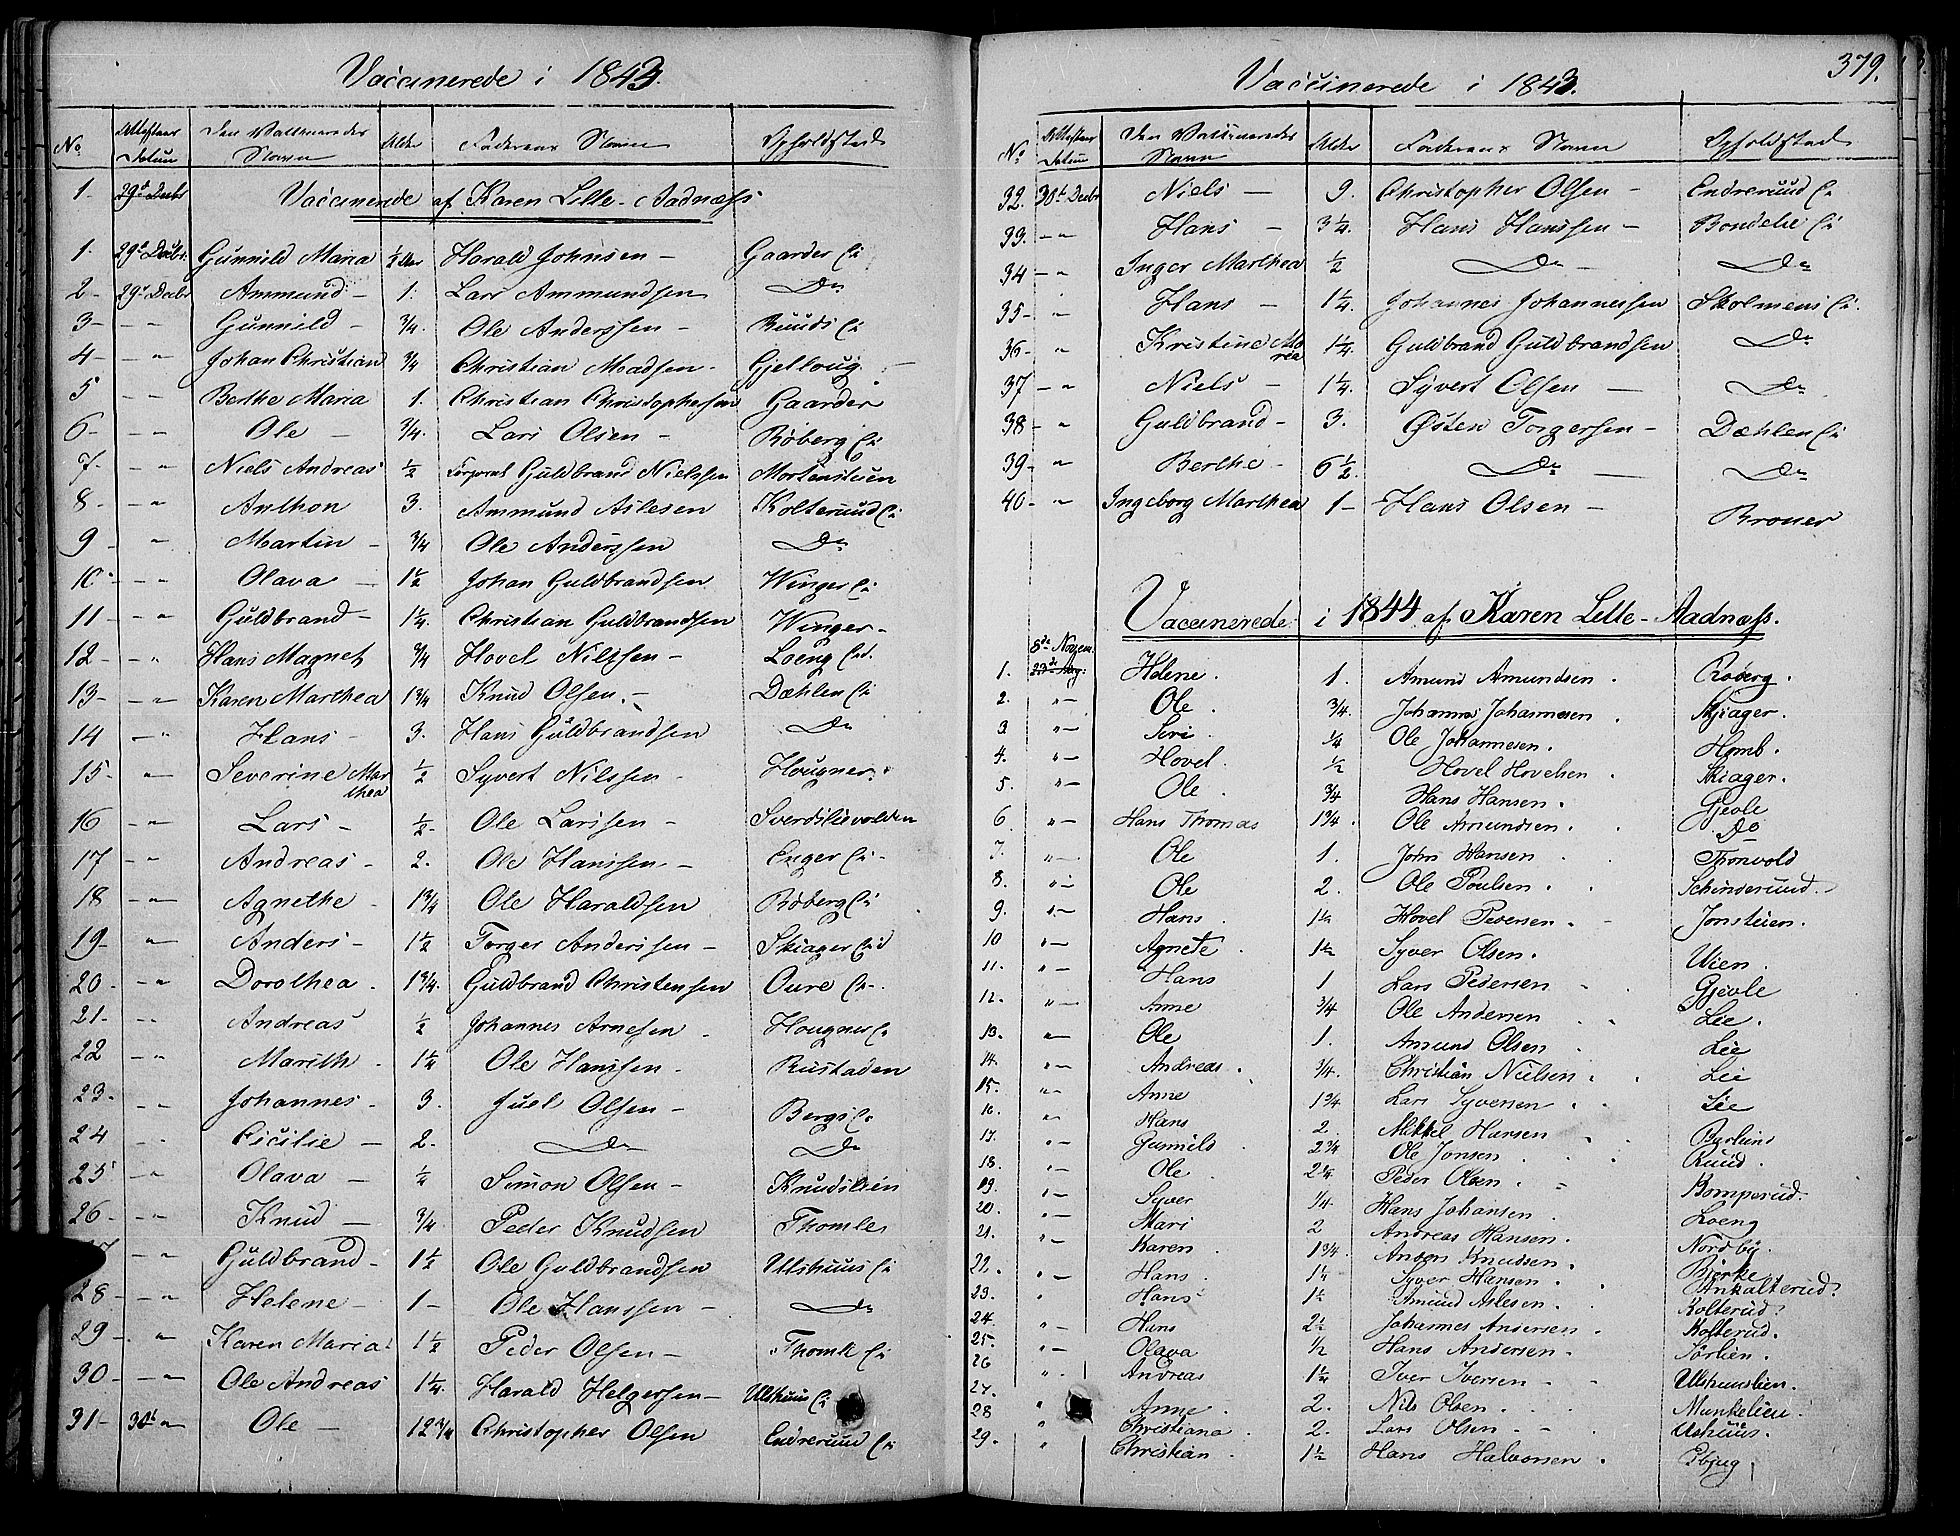 Vaccinerede i 1843.
No Attestens Datum Den Vaccineredes Navn Alder Faderens Navn Opholdsted
1. 29d Decbr Vaccinerede af Karen Lille-Aadnæss
1. 29d Decbr. Gunnild Maria 1/2 Aar Harald Johnsen - Gaarder Ei
2 - 29d Decbr Ammund - 1. Lars Ammundsen Do
3 - - " Gunnild - 3/4. Ole Anderssen - Ruuds Ei
4 - - " Johan Christian 3/4 Christian Madsen - Gjelloug -
5 - - Berthe Maria 1. Christian Christophersen Gaarder
6 - - " Ole - 3/4. Lars Olsen - Röberg Ei
7 - - " Niels Andreas 1/2 Corporal Guldbrand Nielssen Mortensteien
8 - - " Anthon 3. Ammund Aslesen Kolteruud Ei
9 - " Martin - 3/4 Ole Anderssen Do
10 - - " Olava - 1 1/2 Johan Guldbrandsen Winger Ei
11 - - " Guldbrand - 1 1/4. Christian Guldbrandsen Winger -
12 - - " Hans Magnet 3/4 Hovel Nilssen - Loeng Eid.
13 - - " Karen Marthea 1 3/4 Knud Olsen. - Dæhlen Ei
14 - " Hans - 3. Hans Guldbrandsen Do
15 - - Severine Marthea 1/2 Syvert Nilssen - Hougner.
16 - " Lars - 1/2 - Ole Larssen - Sverdslievolden
17 - - " Andreas - 2. Ole Hanssen - Enger Ei -
18 - " Agnethe - 1 3/4 Ole Haraldsen Röberg Ei
19 - " Anders - 1 1/2 Torger Anderssen - Skiager Eid
20 - - " Dorothea - 1 3/4. Guldbrand Christensen Oure Ei -
21 - - " Andreas 1/2 Johannes Arnesen - Hougner Ei
22 - " Marith - 1 1/4 Ole Hanssen - Rustaden
23 - - " Johannes - 3. Juel Olsen - Bergs Ei
24 - " Cicilie - 2. Do Do
25 - " Olava - 1/4 Simon Olsen - Knudslien
26 - - " Knud - 3/4 Peder Knudsen Thomle
- " Guldbrand - 1 1/2 Ole Guldbrandsen Ulshuus Ei
28 - - " Helene - 1 - Ole Hanssen - Do
29 - " Karen Maria 1 1/2 Peder Olsen - Thomle Ei
30 - - " Ole Andreas 1 1/4. Harald Helgersen - Ulshuus Ei
31 - 30d " Ole - 12 3/4 Christopher Olsen Endreruud Ei
379.
Vaccinerede i 1843.
No Attestens Datum Den Vaccineredes Navn Alder Faderens Navn Opholdsted
32. 30d Decbr Niels - 9. Christopher Olsen - Endreruud Ei
33. - " Hans - 3 1/4. Hans Hanssen - Bondelie Ei
34 - " Inger Marthea 1/2 Do - Do
35 - " Hans - 1 1/4. Johannes Johannessen Skolmens Ei.
36 - " Kristine 1 1/4. Guldbrand Guldbrandsen Do
37 - " Niels - 1 1/4. Syvert Olsen - Do
38 - " Guldbrand - 3. Østen Torgersen - Dæhlen Ei
39 - " Berthe - 6 1/2. Do Do
40 - " Ingeborg Marthea 1 - Hans Olsen - Broner
Vaccinerede i 1844 af Karen Lille-Aadnæss.
1. Helene. 1. Amund Amundsen. Röberg.
2. " - Ole. 3/4. Johannes Johannesen. Skjager.
3 " - Siri. 1/4 Ole Johannesen. Homb.
4. " - Hovel. 1/2 Hovel Hovelsen. Skiager.
5. " - Ole. 3/4 Hans Hansen. Gjevle
6. " - Hans Thomas 1 3/4. Ole Amundsen. Do
7. " - Ole 1. John Hansen. Thonvold
8. " - Ole 2. Ole Poulsen. Schinderuud.
9. " - Hans. 1 1/4 Hovel Pedersen. Jonsteien.
10 " - Agnete. 1 1/2 Syver Olsen. Wien.
11. " - Hans 1 Lars Pedersen Gjevle
12. " - Anne 3/4 Ole Andersen Lie.
13. " - Ole 1. Amund Olsen. Lie
14. " - Andreas. 3/4. Christian Nielsen. Lie
15. " - Anne 1 3/4 Lars Syversen. Lie
16. " Hans 2. Mikkel Hansen Byelund
17. " - Gunnild. 2 3/4 Ole Jonsen Ruud.
18. " - Ole. 2 1/4. Peder Olsen. Bomperud.
19. " - Syver 1/4. Hans Johansen Loeng
20. " - Mari 2 Andreas Hansen. Nordby.
21. " - Karen. 1 3/4. Anders Knudsen. Bjerke
22. " - Hans. 1 1/4 Syver Hansen. Ankalterud?
23. " Hans 1 1/2 Amund Aslesen. Kolterud?
24. " - Hans 2 1/2 Johannes Andersen. Kolterud.
25. " - Olava 1/2 Hans Andersen. Sörlien.
26 " . Andreas 1 1/4 Iver Iversen Ulshuuslien.
27. " Anne. 2. Nils Olsen. Munkelien.
28 " Christiana. 2. Lars Olsen. Ulshuus.
29. " Christian. 1 1/2 Hans Halvorsen.